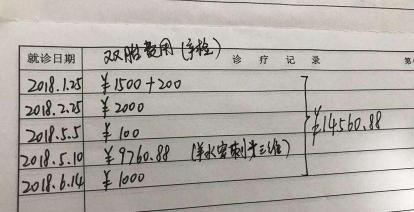 双胎费用(孕检)
就诊日期 诊疗记录
2018.1.25 ¥1500+200
2018.2.25 ¥2000
2018.5.5 ¥100
2018.5.10 ¥9760.88 (羊水穿刺+三维)
2018.6.14 ¥1000
¥14560.88